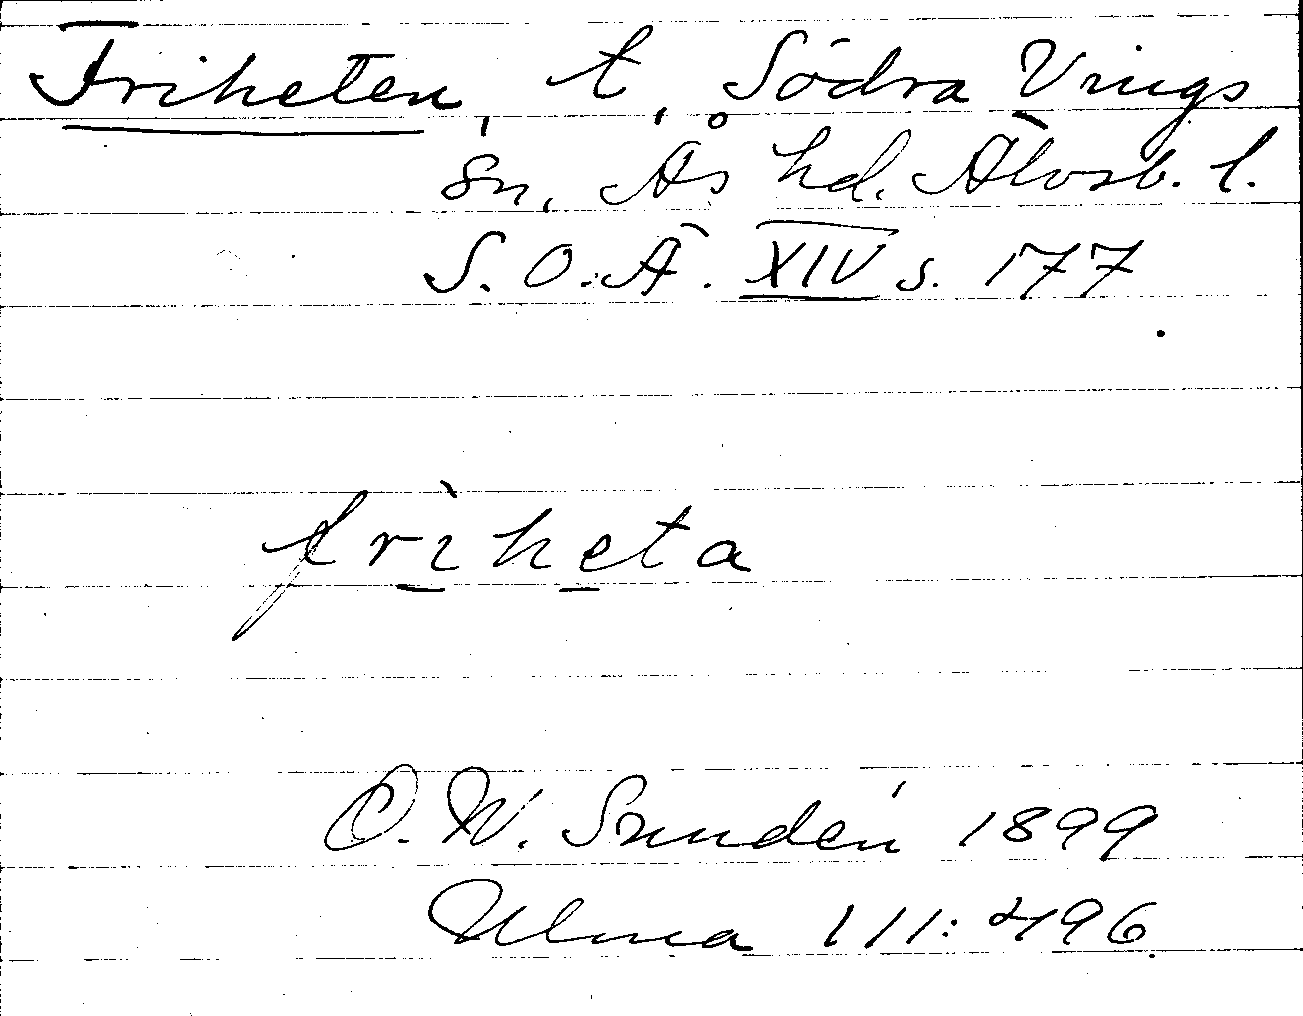 Friheten, t, Södra Vings
sn, Ås hd. Älvsb. l.
S.O.Ä. XIV s. 177
frìheta
O. W. Sundén 1899
Ulma 111:496.